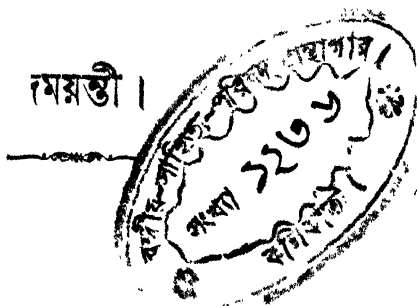 দময়ন্তী।
বঙ্গীয়-সাহিত্য-পরিষদ্ গ্রন্থাগার।
সংখ্যা ১২৩৬
কলিকাতা।